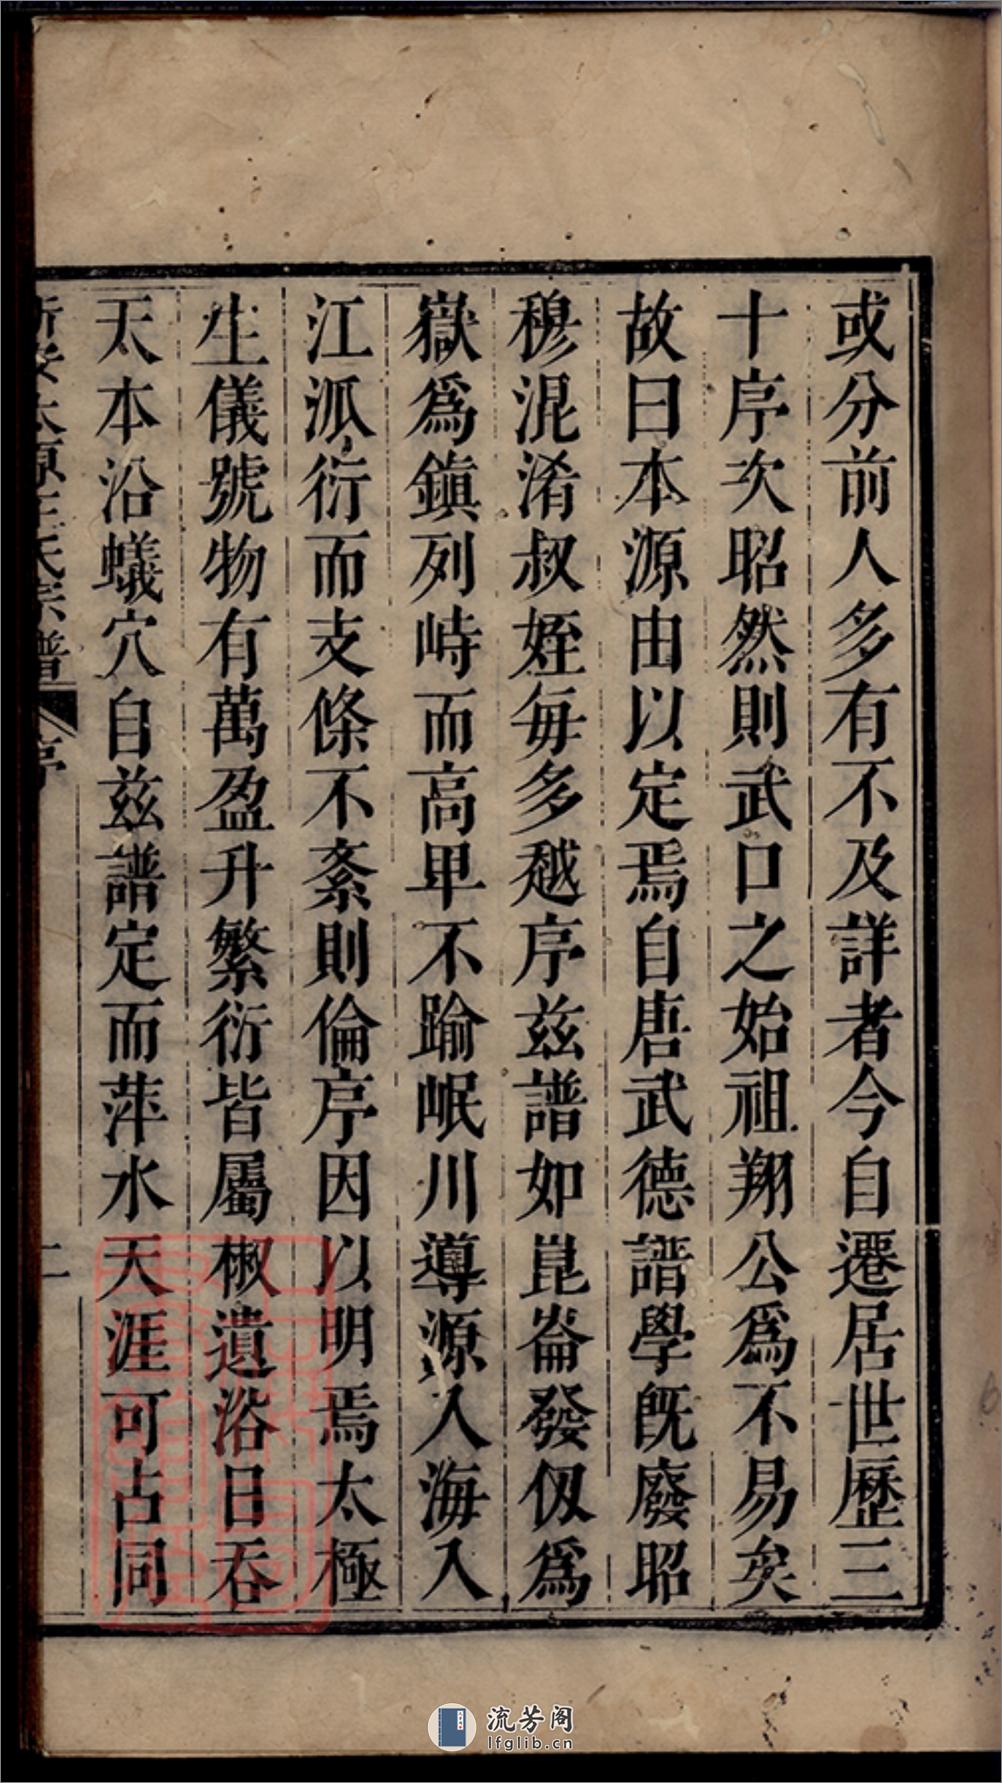 或分前人多有不及詳者今自遷居世歷三
十序次昭然則武口之始祖翔公為不易矣
故曰本源由以定焉自唐武德譜學既廢昭
穆混淆叔姪每多越序兹譜如崑崙發仭為
嶽為鎮列峙而高卑不踰岷川導源入海入
江派衍而支條不紊則倫序因以明焉太極
生儀號物有萬盈升繁衍皆屬椒遺浴日吞
天本沿蟻穴自兹譜定而萍水天涯可占同
新安太原王氏宗譜 序 二
流芳阁
lfglib.cn